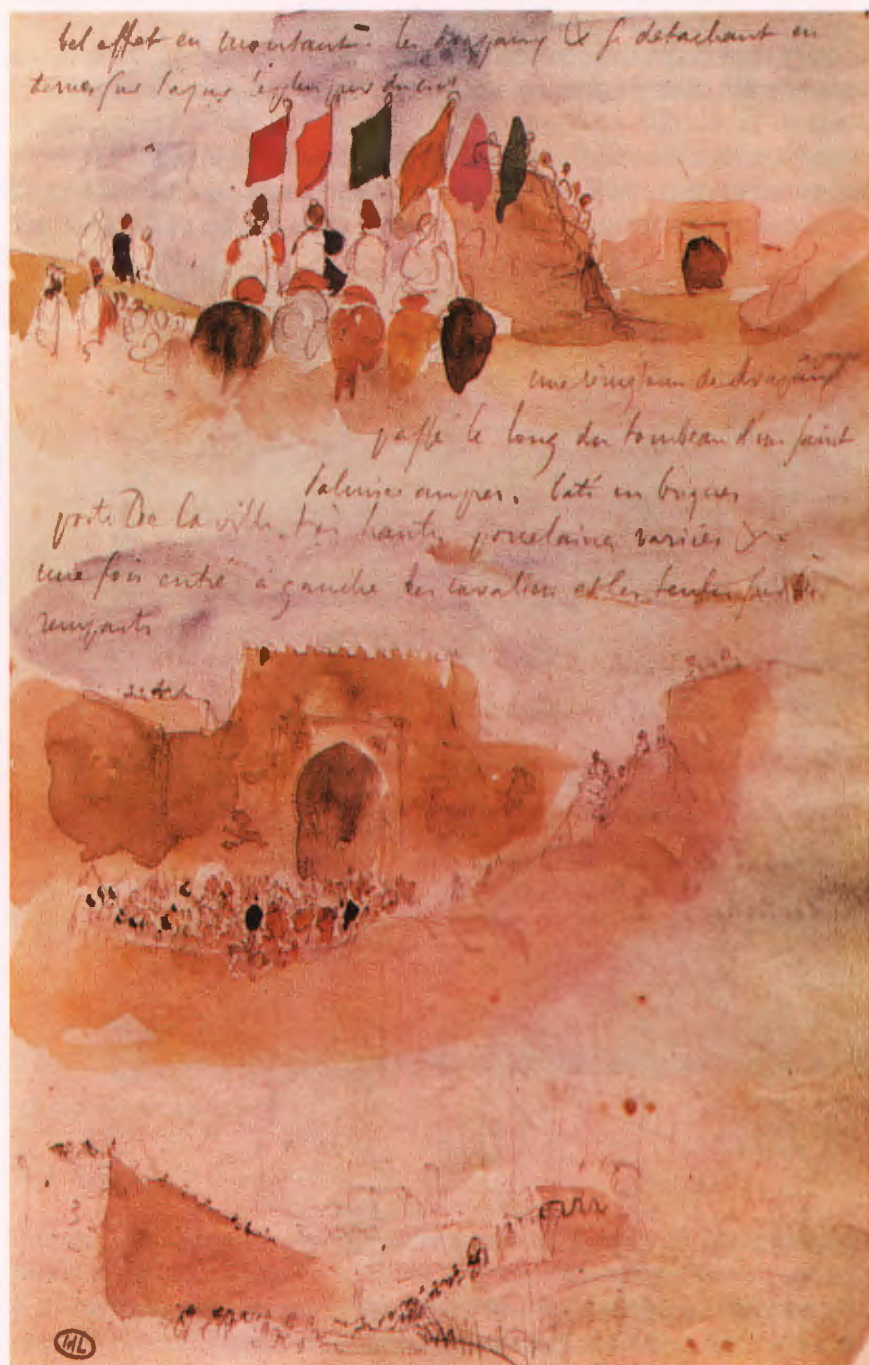 bel effet en montant. les drapeaux &c se détachant en
terues sur l'azur du ciel
une vingtaine de drapeaux
passé le long du tombeau d'un saint
Palmier auprès. bâti en briques
porte De la ville. très haute, porcelaines variées
une fois entré à gauche les cavaliers et les tentes sur les
remparts
ML